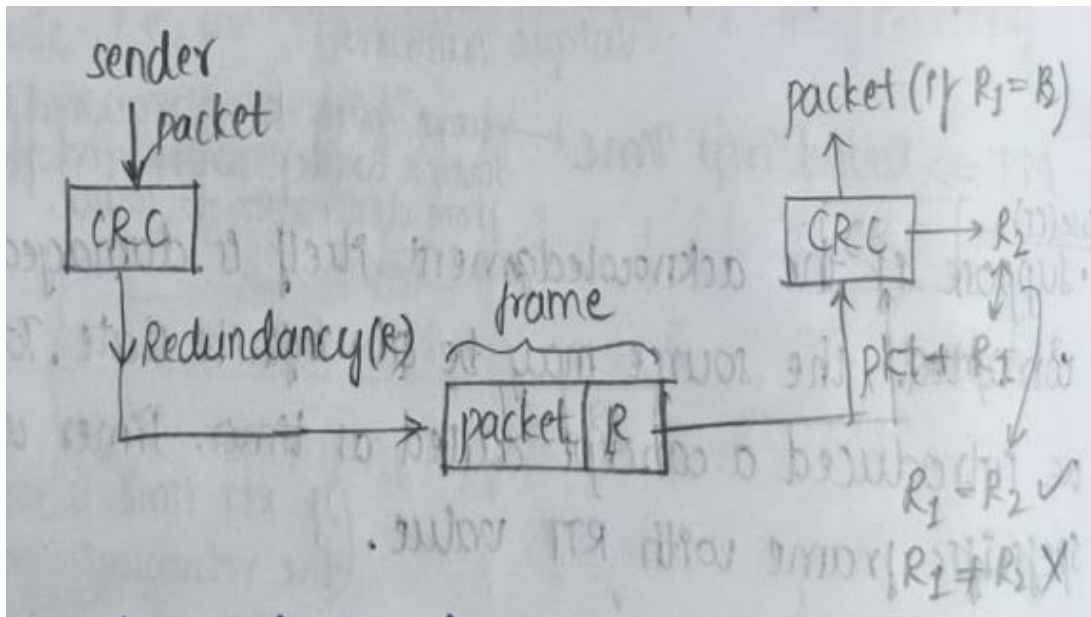 sender
packet
CRC
Redundancy(R)
frame
packet R
packet (if R₁ = R₂)
CRC
R₂
pkt + R₁
R₁ = R₂ ✓
R₁ ≠ R₂ X